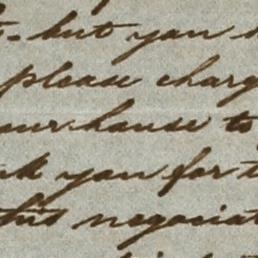 but you
please charg
our house to
you for t
this negociat